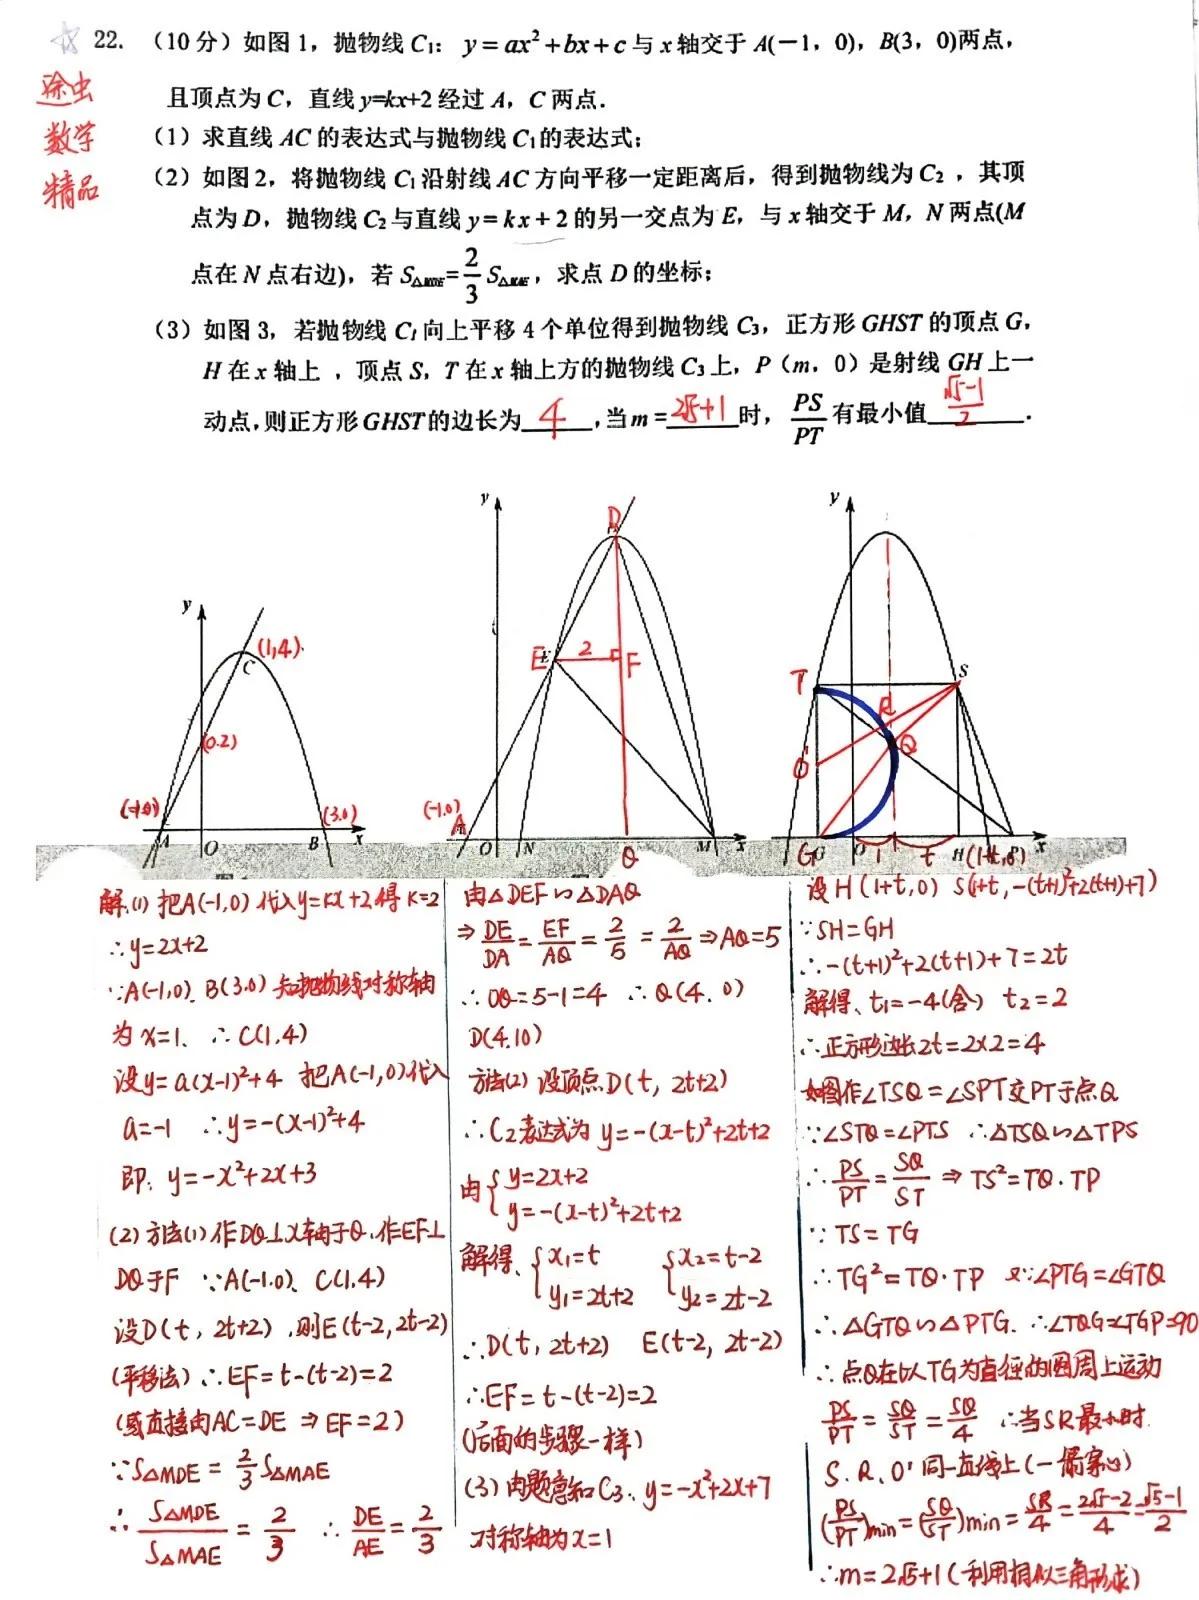 22. （10分）如图1，抛物线C₁：y＝ax²＋bx＋c与x轴交于A(－1，0)，B(3，0)两点，
且顶点为C，直线y=kx+2经过A，C两点．
（1）求直线AC的表达式与抛物线C₁的表达式；
（2）如图2，将抛物线C₁沿射线AC方向平移一定距离后，得到抛物线为C₂，其顶
点为D，抛物线C₂与直线y＝kx＋2的另一交点为E，与x轴交于M，N两点(M
点在N点右边)，若S△MDE=2/3 S△MAE，求点D的坐标；
（3）如图3，若抛物线C₁向上平移4个单位得到抛物线C₃，正方形GHST的顶点G，
H在x轴上，顶点S，T在x轴上方的抛物线C₃上，P（m，0）是射线GH上一
动点，则正方形GHST的边长为 4 ，当m＝ 2√5+1 时，PS/PT 有最小值 (√5-1)/2 ．
途虫
数学
精品
y
(1,4)
C
(0.2)
(-1.0)
(3.0)
A
O
B
x
y
D
E
2
F
(-1.0)
A
O
N
Q
M
x
y
T
S
R
Q
O'
G
O
1
t
H
(1+t,0)
P
x
解.(1) 把A(-1,0)代入y=kx+2得k=2
∴y=2x+2
∵A(-1,0).B(3.0)知抛物线对称轴
为x=1. ∴C(1,4)
设y=a(x-1)²+4 把A(-1,0)代入
a=-1 ∴y=-(x-1)²+4
即: y=-x²+2x+3
(2)方法(1)作DQ⊥x轴于Q.作EF⊥
DQ于F ∵A(-1.0)、C(1,4)
设D(t, 2t+2).则E(t-2,2t-2)
(平移法)∴EF=t-(t-2)=2
(或直接由AC=DE ⇒EF=2)
∵S△MDE=2/3 S△MAE
∴S△MDE/S△MAE=2/3 ∴DE/AE=2/3
由△DEF∽△DAQ
⇒DE/DA=EF/AQ=2/5=2/AQ⇒AQ=5
∴OQ=5-1=4 ∴Q(4.0)
D(4.10)
方法(2) 设顶点D(t, 2t+2)
∴C₂表达式为 y=-(x-t)²+2t+2
由{y=2x+2
y=-(x-t)²+2t+2
解得、{x₁=t {x₂=t-2
y₁=2t+2 y₂=2t-2
∴D(t, 2t+2) E(t-2, 2t-2)
∴EF=t-(t-2)=2
(后面的步骤一样)
(3)由题意知C₃: y=-x²+2x+7
对称轴为x=1
设H(1+t,0) S(1+t, -(t+1)²+2(t+1)+7)
∵SH=GH
∴-(t+1)²+2(t+1)+7=2t
解得、t₁=-4(舍) t₂=2
∴正方形边长2t=2×2=4
如图作∠TSQ=∠SPT交PT于点Q
∵∠STQ=∠PTS ∴△TSQ∽△TPS
∴PS/PT=SQ/ST ⇒TS²=TQ·TP
∵TS=TG
∴TG²=TQ·TP 又∵∠PTG=∠GTQ
∴△GTQ∽△PTG. ∴∠TQG=∠TGP=90
∴点Q在以TG为直径的圆周上运动
PS/PT=SQ/ST=SQ/4 ∴当SR最小时.
S、R、O'同一直线上(一箭穿心)
(PS/PT)min=(SQ/ST)min=SR/4=(2√5-2)/4=(√5-1)/2
∴m=2√5+1(利用相似三角形求)